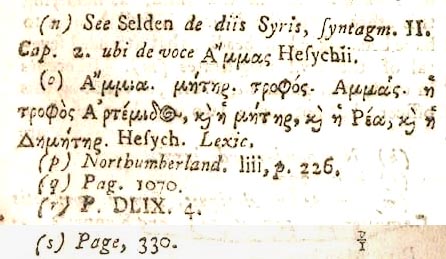 (n) See Selden de diis Syris, ſyntagm. II.
Cap. 2. ubi de voce Ἄμμας Heſychii.
(o) Ἄμμια. μήτηρ. τροφός. Αμμάς. ἡ
τροφὸς Ἀρτέμιδος, κὴ ἡ μήτηρ, κὴ ἡ Ρέα, κὴ ἡ
Δημήτηρ. Heſych. Lexic.
(p) Northumberland. liii, p. 226.
(q) Pag. 1070.
(r) P. DLIX. 4.
(s) Page, 330.